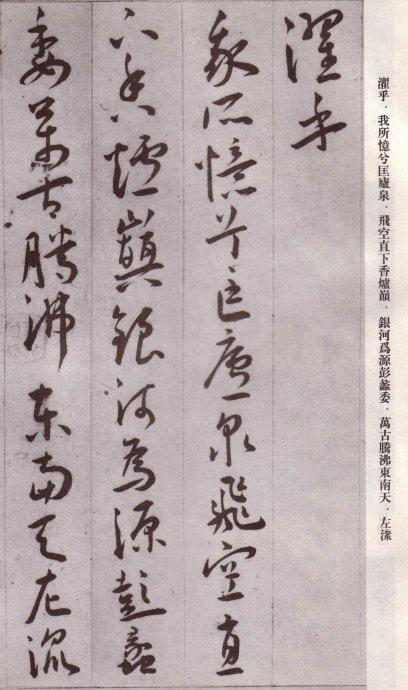 濯乎．我所憶兮匡廬泉．飛空直下香爐巔．銀河爲源彭蠡委．萬古騰沸東南天．左潨
濯乎
我所憶兮匡廬泉飛空直
下香爐巔銀河為源彭蠡
委萬古騰沸東南天左潨